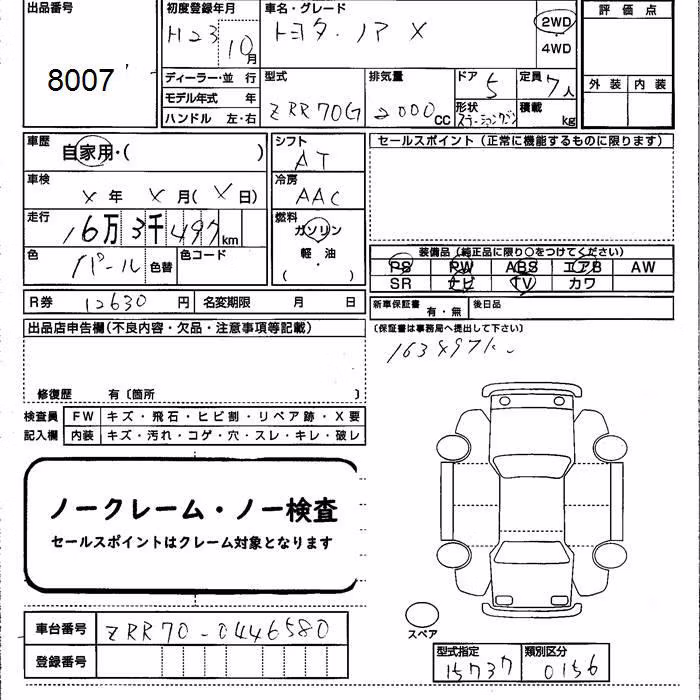 出品番号
8007
初度登録年月
H23 10月
車名・グレード
トヨタ・ノア X
2WD
4WD
評価点
外装 内装
ディーラー・並行
モデル年式 年
ハンドル 左・右
型式
ZRR70G
排気量
2000 CC
ドア
5
形状
ステーションワゴン
定員
7人
積載
kg
車歴
自家用・( )
車検
X年 X月(X日)
走行
16万3千497km
色
パール
色替
色コード
シフト
AT
冷房
AAC
燃料
ガソリン
軽・油
( )
セールスポイント(正常に機能するものに限ります)
装備品(純正品に限り○をつけてください)
PS PW ABS エアB AW
SR ナビ TV カワ
R券 12630円
名変期限 月 日
新車保証書 有・無
後日品
(保証書は事務局へ提出して下さい)
163497k
出品店申告欄(不良内容・欠品・注意事項等記載)
修復歴 有〔箇所 〕
検査員 FW キズ・飛石・ヒビ割・リペア跡・X要
記入欄 内装 キズ・汚れ・コゲ・穴・スレ・キレ・破レ
ノークレーム・ノー検査
セールスポイントはクレーム対象となります
スペア
車台番号 ZRR70-0446580
登録番号
型式指定
15737
類別区分
0156